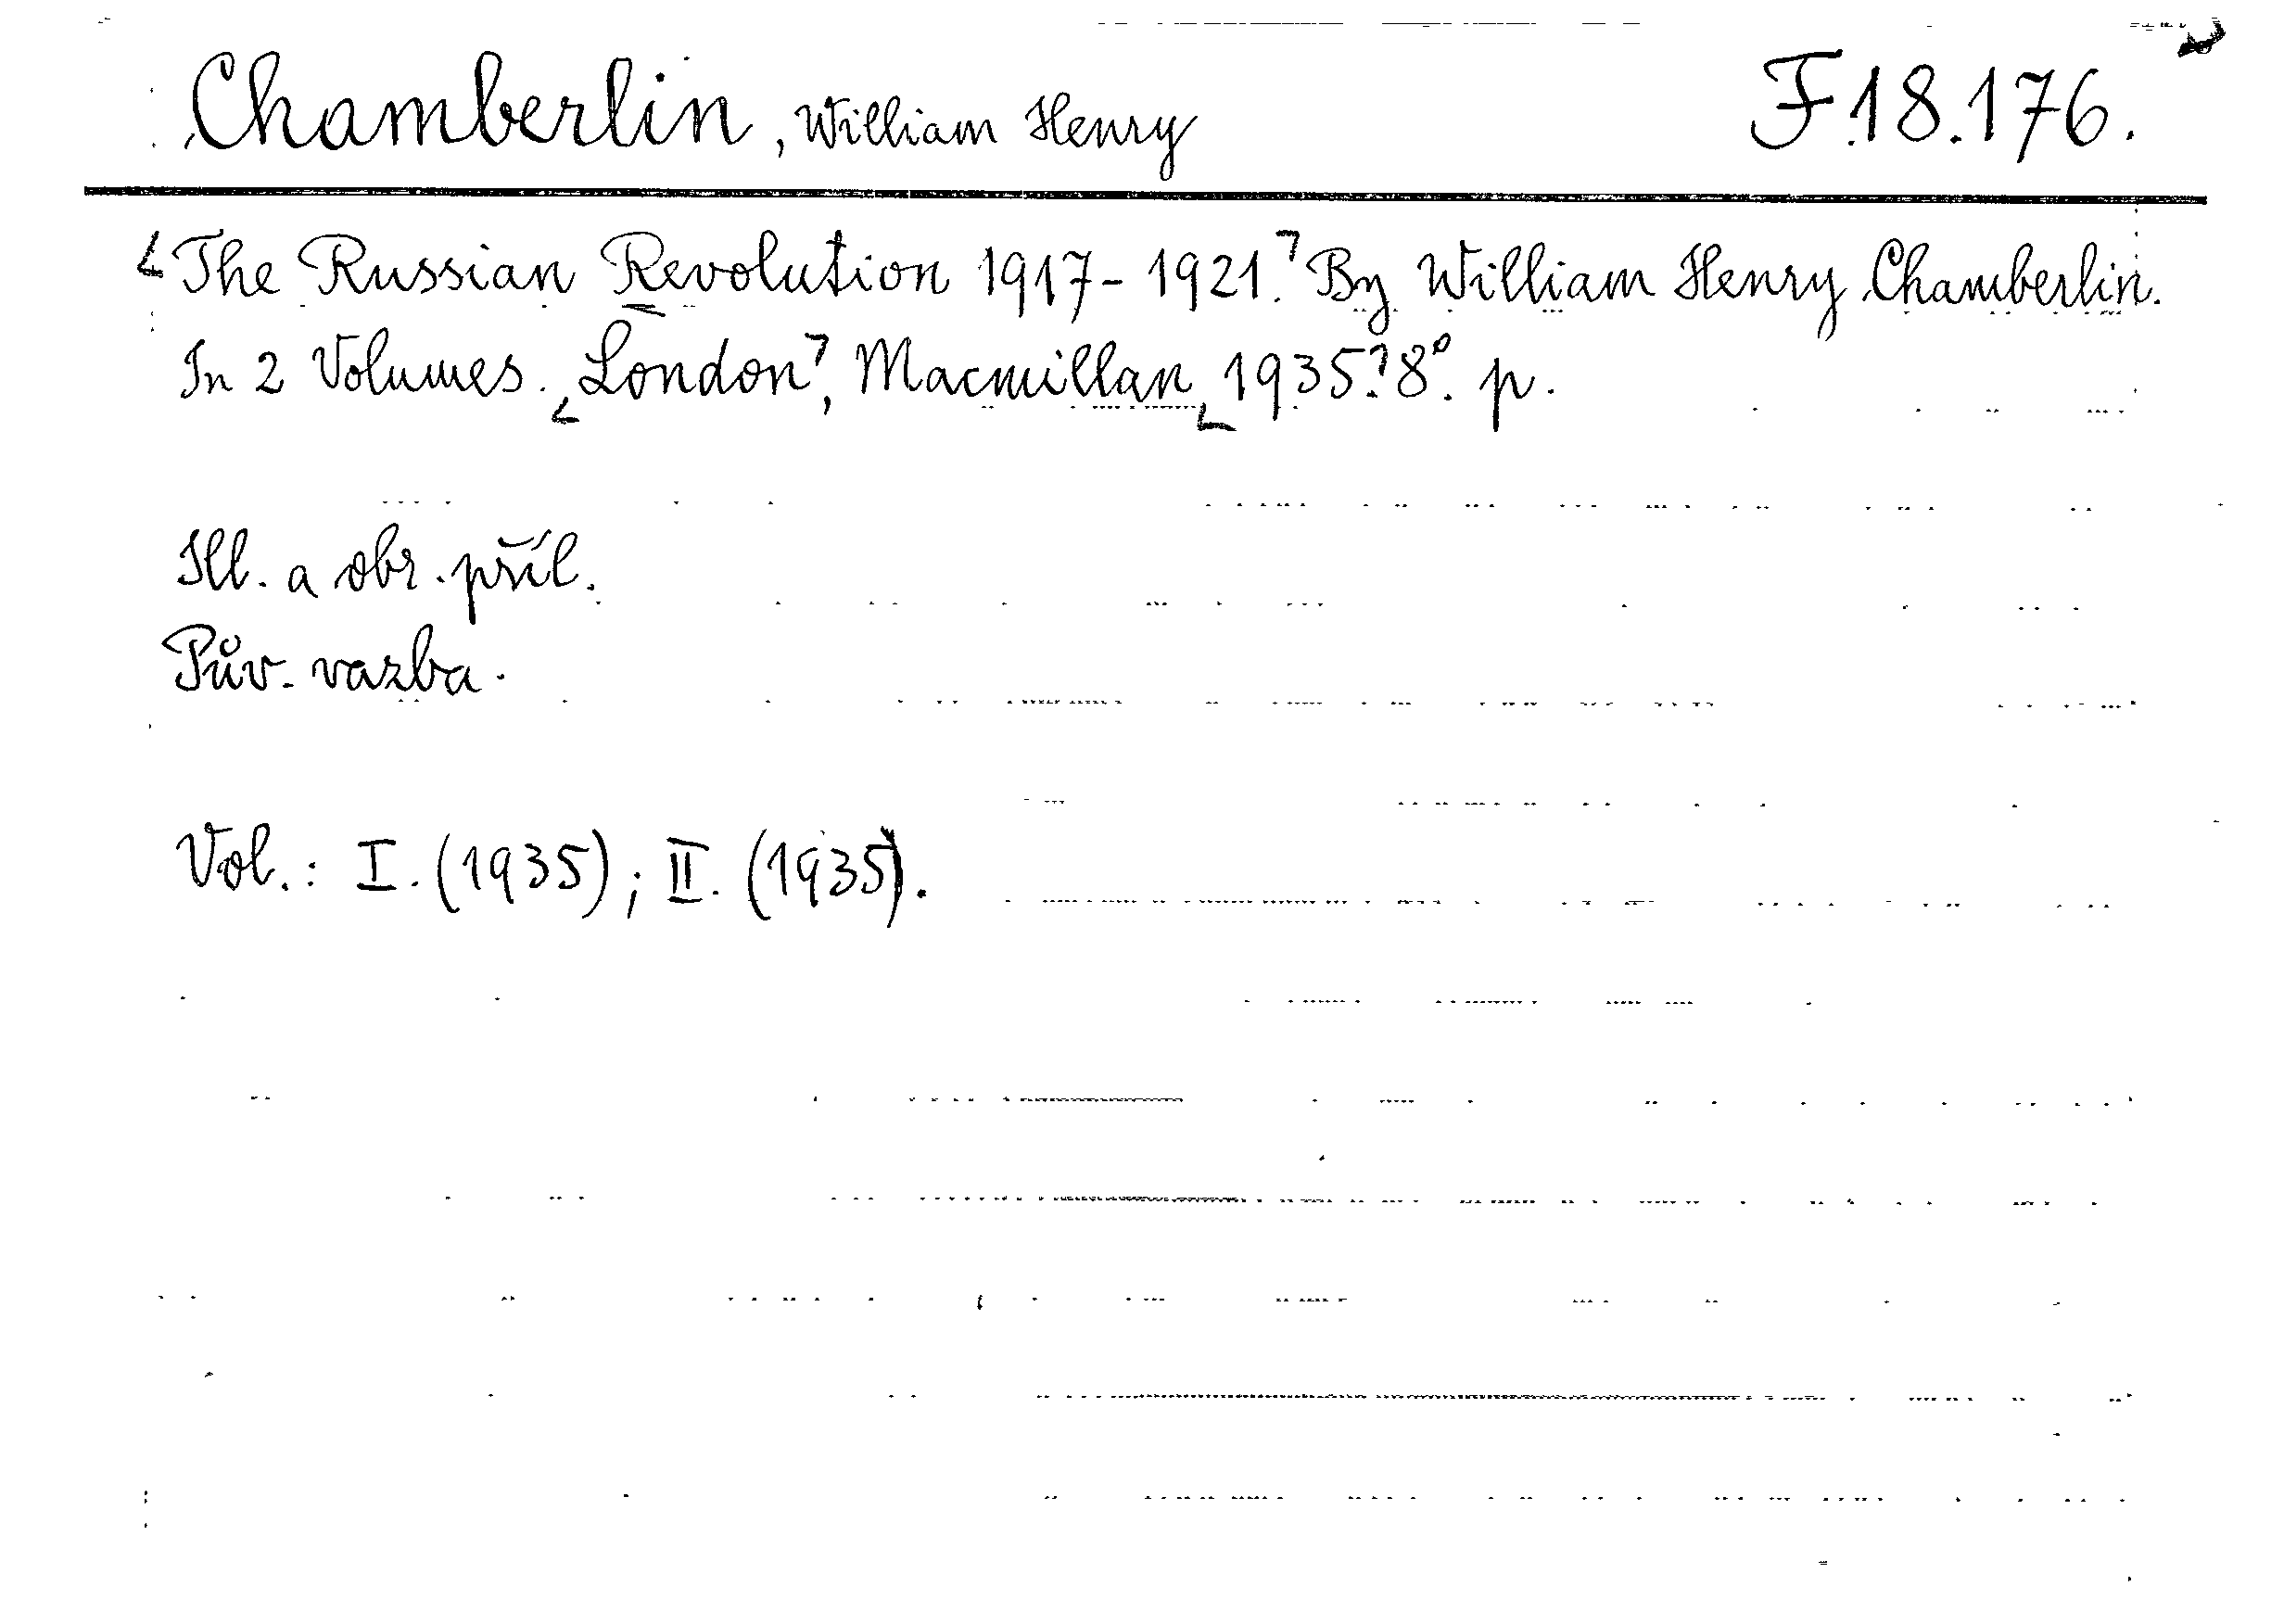 Chamberlin, William Henry F.18.176.
The Russian Revolution 1917-1921. By William Henry Chamberlin.
In 2 Volumes. London, Macmillan, 1935. 8°. p.
Ill. a obr. příl.
Pův. vazba.
Vol.: I. (1935); II. (1935).